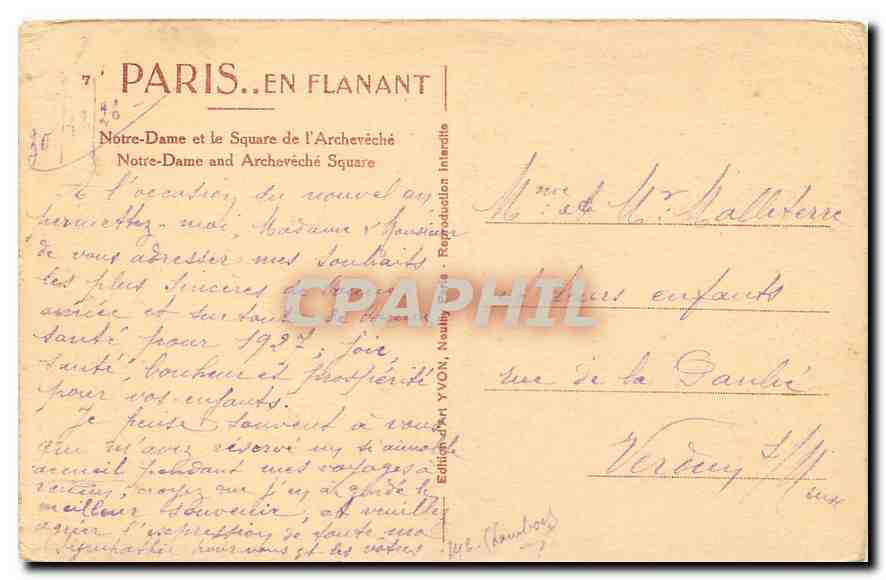 7
PARIS..EN FLANANT
Notre-Dame et le Square de l'Archevêché
Notre-Dame and Archevêché Square
A l'occasion du nouvel an
permettez-moi, Madame & Monsieur
de vous adresser mes souhaits
les plus sincères de bonne
année et surtout de bonne
santé pour 1927, joie,
santé, bonheur et prospérité
pour vos enfants.
Je pense souvent à vous
qui m'avez réservé un si aimable
accueil pendant mes voyages à
croyez que j'en ai gardé le
meilleur souvenir, et veuillez
agréer l'expression de toute ma
sympathie pour vous et les vôtres
Edition d'Art YVON, Neuilly Paris - Reproduction Interdite
Mme et Mr Malleterre
et leurs enfants
rue de la
Verdun s/Meuse
CPAPHIL